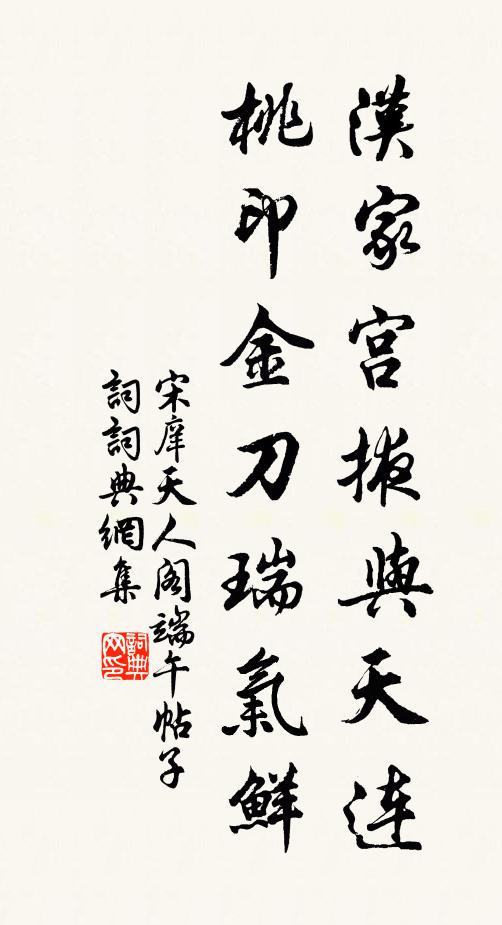 漢家宮掖與天連
桃印金刀瑞氣鮮
宋庠天人閣端午帖子
詞詞典網集
詞典
网印